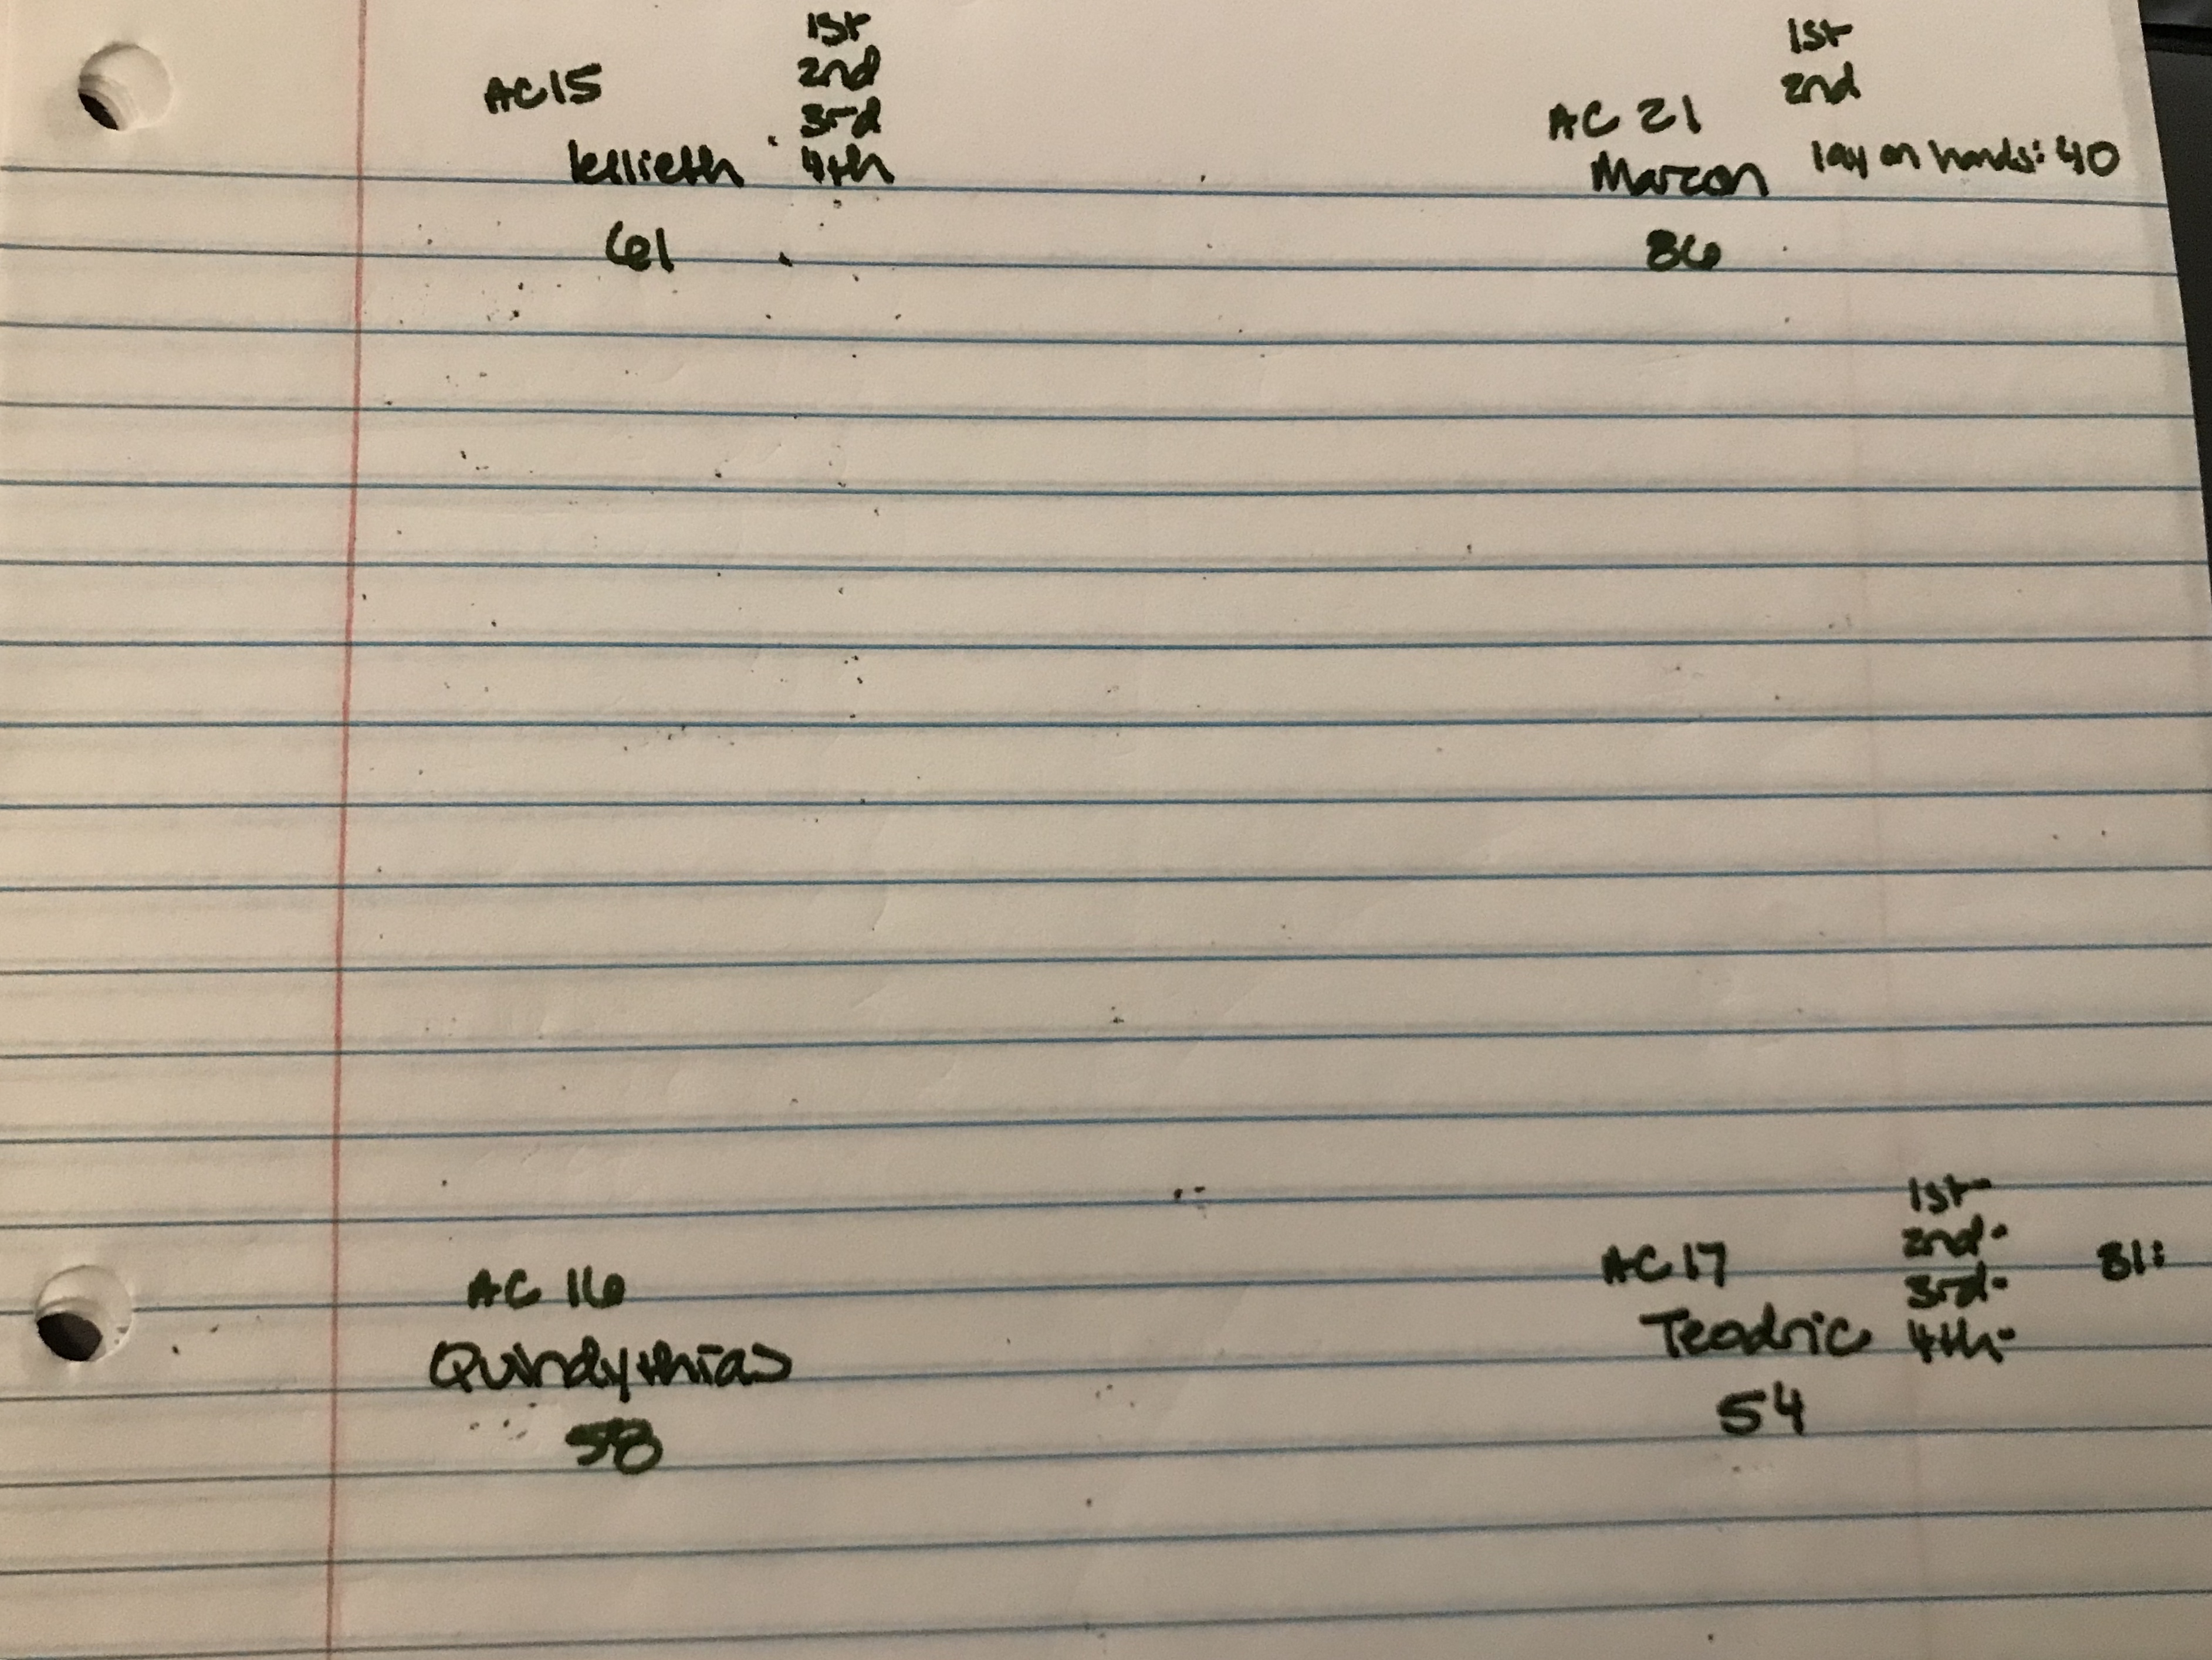 AC 15
1st
2nd
3rd
4th
Kellieth
61
AC 21
1st
2nd
lay on hands: 40
Marcon
86
AC 16
Quindythias
58
AC 17
1st-
2nd-
3rd-
4th-
Teodric
54